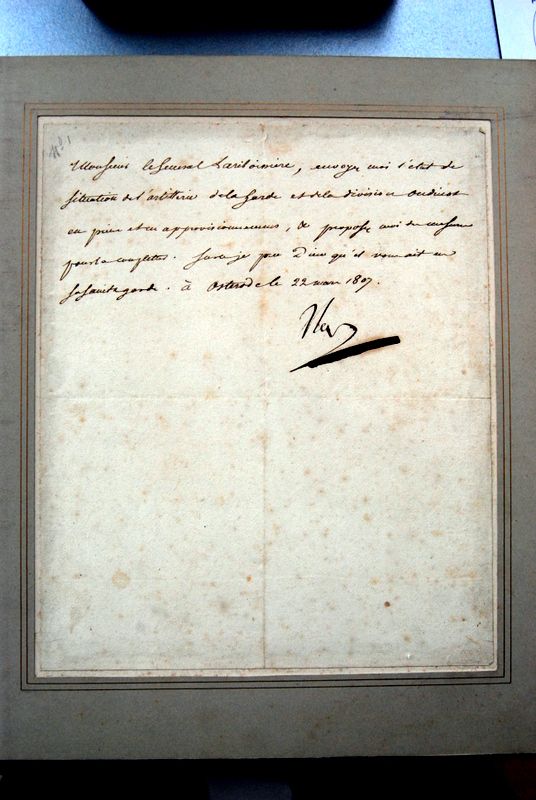 N° 1
Monsieur le General Lariboissiere, envoyez moi l'etat de
situation de l'artillerie de la Garde et de la division Oudinot
en piece et en approvisionnemens, & proposez moi des mesures
pour la completter. Sur ce je prie Dieu qu'il vous ait en
sa sainte garde. à Osterode le 22 mars 1807.
Nap